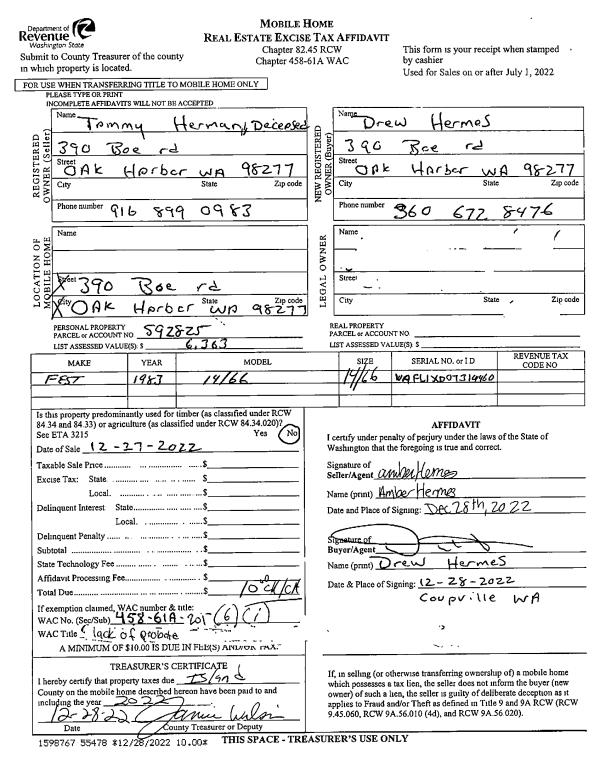 Department of
Revenue
Washington State
Submit to County Treasurer of the county
in which property is located.
MOBILE HOME
REAL ESTATE EXCISE TAX AFFIDAVIT
Chapter 82.45 RCW
Chapter 458-61A WAC
This form is your receipt when stamped
by cashier
Used for Sales on or after July 1, 2022
FOR USE WHEN TRANSFERRING TITLE TO MOBILE HOME ONLY
PLEASE TYPE OR PRINT
INCOMPLETE AFFIDAVITS WILL NOT BE ACCEPTED
REGISTERED OWNER (Seller)
Name Tommy Herman, Deceased
390 Boe rd
Street
OAK Harbor WA 98277
City State Zip code
Phone number 916 899 0983
NEW REGISTERED OWNER (Buyer)
Name Drew Hermes
390 Boe rd
Street
OAK Harbor WA 98277
City State Zip code
Phone number 360 672 8476
LOCATION OF MOBILE HOME
Name
Street 390 Boe rd
City OAK Harbor State WA Zip code 98277
LEGAL OWNER
Name
Street
City State Zip code
PERSONAL PROPERTY
PARCEL or ACCOUNT NO 592825
LIST ASSESSED VALUE(S) $ 6,363
REAL PROPERTY
PARCEL or ACCOUNT NO
LIST ASSESSED VALUE(S) $
MAKE YEAR MODEL SIZE SERIAL NO. or I D REVENUE TAX CODE NO
FEST 1983 14/66 14/66 WAFL1XD07314460
Is this property predominantly used for timber (as classified under RCW
84.34 and 84.33) or agriculture (as classified under RCW 84.34.020)?
See ETA 3215 Yes No
Date of Sale 12-27-2022
Taxable Sale Price $
Excise Tax: State $
Local $
Delinquent Interest State $
Local $
Delinquent Penalty $
Subtotal $
State Technology Fee $
Affidavit Processing Fee $
Total Due $ 10.00 CK/CA
If exemption claimed, WAC number & title:
WAC No. (Sec/Sub) 458-61A-201 (6)(i)
WAC Title lack of probate
A MINIMUM OF $10.00 IS DUE IN FEE(S) AND/OR TAX.
AFFIDAVIT
I certify under penalty of perjury under the laws of the State of
Washington that the foregoing is true and correct.
Signature of
Seller/Agent Amber Hermes
Name (print) Amber Hermes
Date and Place of Signing: Dec 28th, 2022
Signature of
Buyer/Agent
Name (print) Drew Hermes
Date & Place of Signing: 12-28-2022
Coupville WA
TREASURER'S CERTIFICATE
I hereby certify that property taxes due Island
County on the mobile home described hereon have been paid to and
including the year 2022
12-28-22
Date County Treasurer or Deputy
If, in selling (or otherwise transferring ownership of) a mobile home
which possesses a tax lien, the seller does not inform the buyer (new
owner) of such a lien, the seller is guilty of deliberate deception as it
applies to Fraud and/or Theft as defined in Title 9 and 9A RCW (RCW
9.45.060, RCW 9A.56.010 (4d), and RCW 9A.56 020).
1598767 55478 *12/28/2022 10.00* THIS SPACE - TREASURER'S USE ONLY